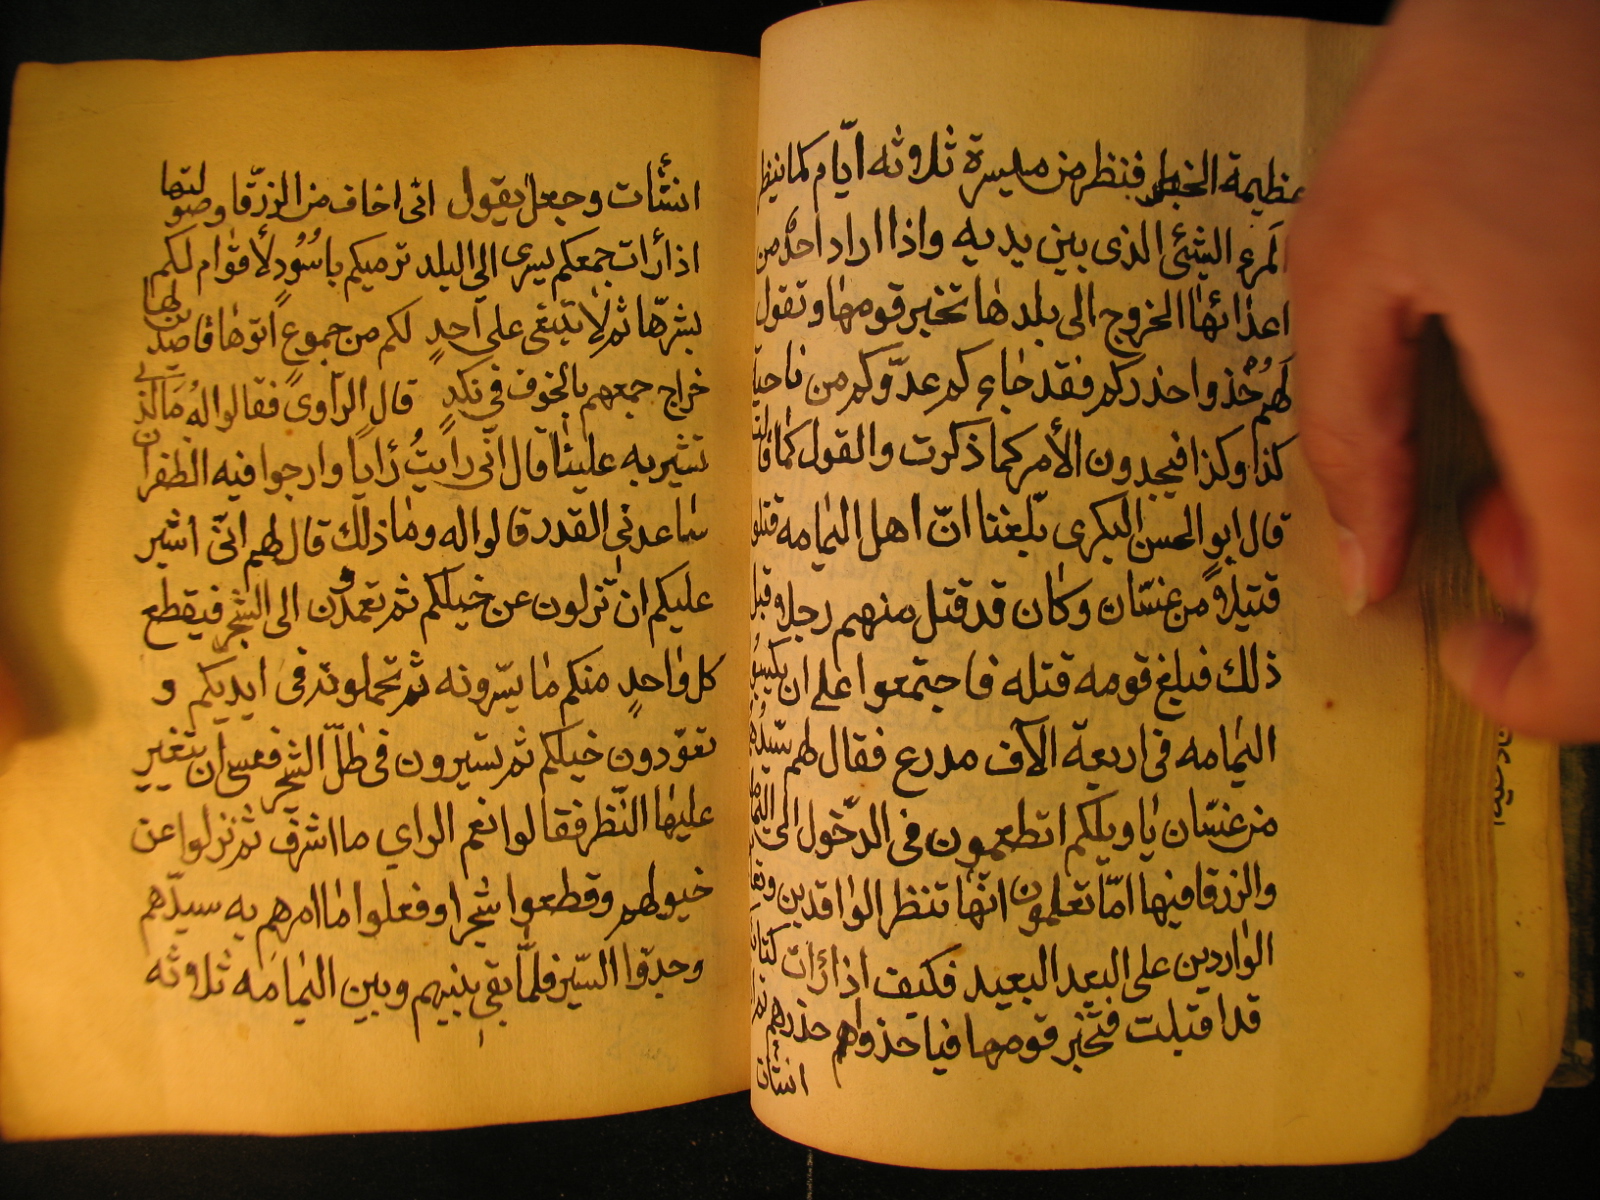 عظيمة الخطر فنظر من مسيرة ثلاوثه ايّام كما ننظر
لمرء الشئ الذى بين يديه واذا اراد احدٌ من
اعدائها الخروج الى بلدها تخبر قومها وتقول
لهم خُذوا حذركم فقد جاءكم عدوّكم من ناحية
كذا وكذا فيجدون الأمر كما ذكرت والقول كما قالت
قال ابو الحسن البكرى بلغنا انّ اهل اليمامه قتلو
قتيلاوً من غسّان وكان قد قتل منهم رجلاو قبل
ذلك فبلغ قومه قتله فاجتمعوا على ان يكبسوُ
اليمامه فى اربعة الآف مدرع فقال لهم سيّدُهم
من غسّان يا ويلكم اتطعمون فى الدّخول الى اليمامه
والزرقا فيها امّا تعلمون انّها تنظر الواقدين
الواردين على البعد البعيد فكيف اذا رات كتائب
قد اقبلت فتخبر قومها فياخذواهم حذرهم ثم
انشأت
انشأت وجعل يقول انى اخاف من الزرّقا وصولتها
اذا رأت جمعكم يسرى الى البلد ترميكم باسُودٍ لأقوام لكم
بشرّها ثم لا تبقى على احدٍ لكم من جموعٍ اتوها قاصدين لها
خراج جمعهم بالخوف فى نكدٍ قال الرّاوى فقالوا لهُ مَا الذى
تشير به علينا قال انّى رايتُ رَاياً وارجوا فيه الظفر ان
ساعدنى القدر قالوا له وما ذلك قال لهم انّى اشير
عليكم ان تزلون عن خيلكم ثم تعمدون الى الشجر فيقطع
كل واحدٍ منكم ما يسّرونه ثم تحملونه فى ايديكم و
تقوّدون خيلكم ثم تسيرون فى ظلّ الشجر فعسى ان يتغير
عليها النّظر فقالوا نعم الراي ما اشرف ثم نزلوا عن
خيولهم وقطعوا شجرا وفعلوا ما امرهم به سيدّهم
وجدّوا السّير فلمّا بقى بينهم وبين اليمامه ثلاوثه